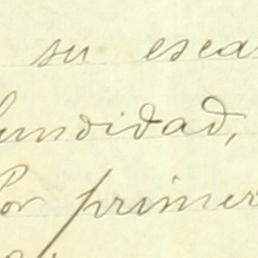 su esca
undidad,
Por primer